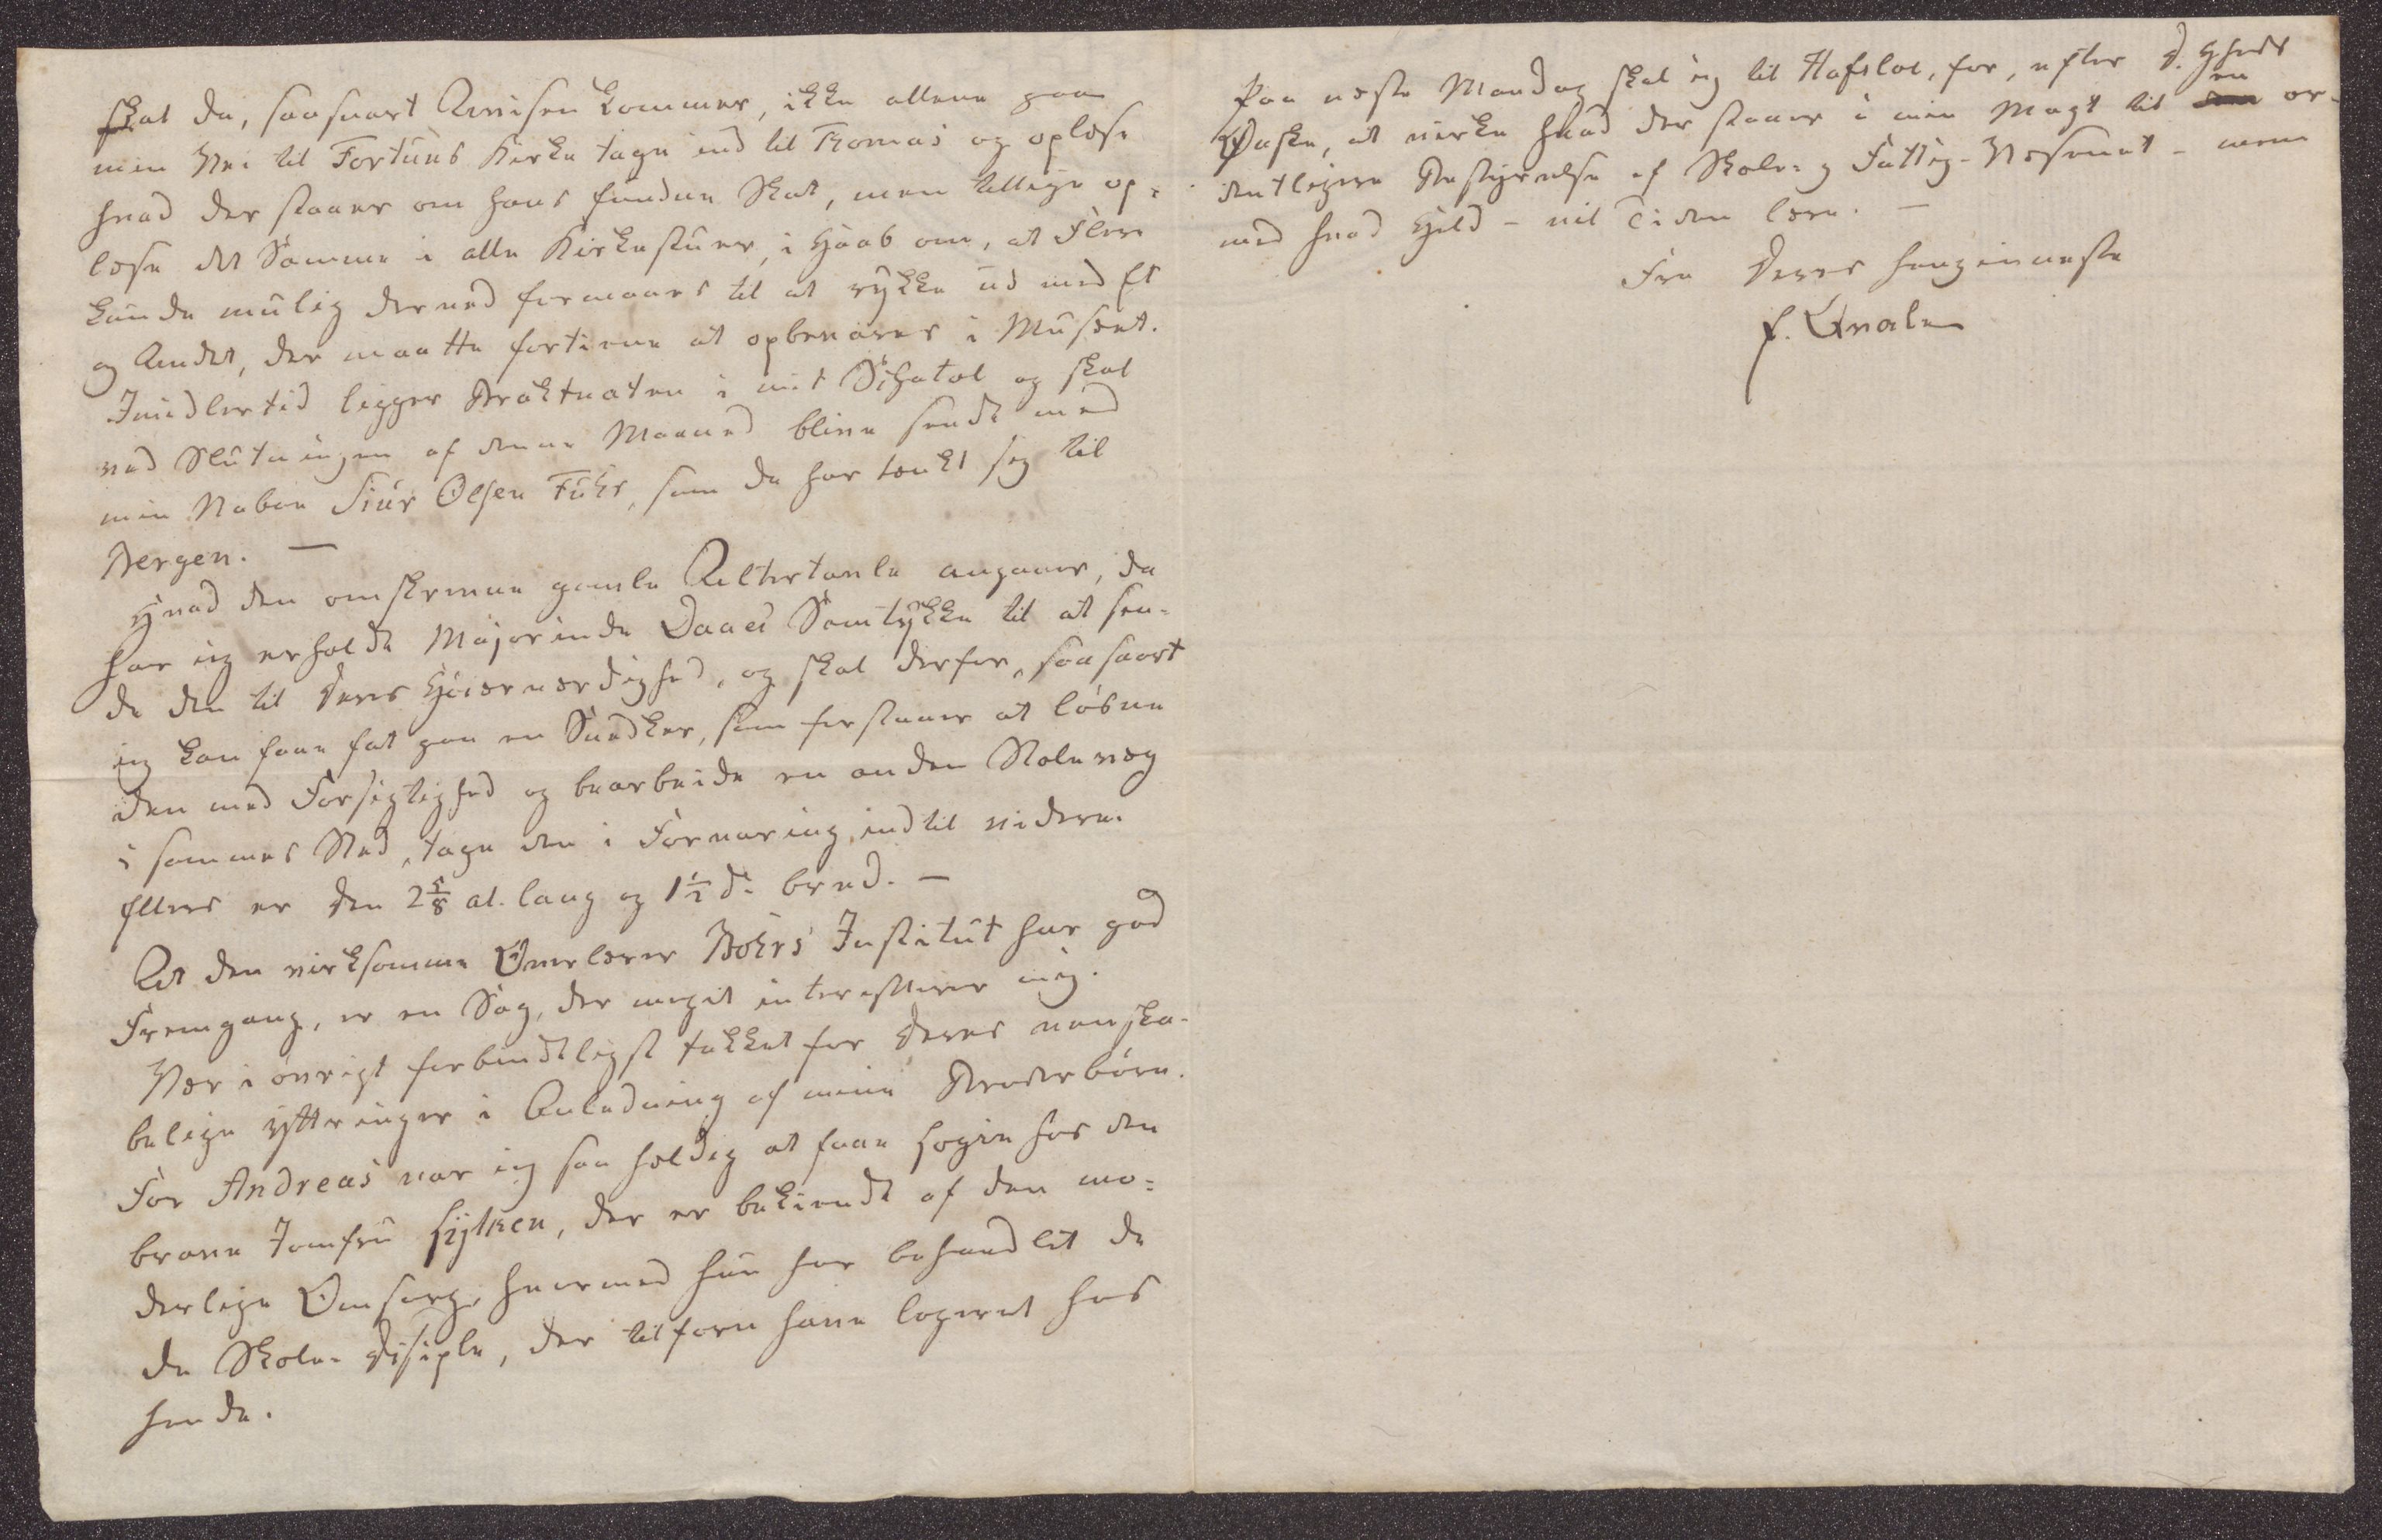 skal da, saasnart Avisen kommer, ikke allene paa
min Vei til Fortuns Kirke tage ind til Thomas og oplæse
hvad der staaer om hans fundne Skat, men tillige op-
læse det Samme i alle Kirkestuer, i Haab om, at Flere
kunde mulig derved formaaes til at rykke ud med Et
og Andet, der maatte fortiene at opbevares i Musæet.
Imidlertid ligger Brakteaten i mit Schatol og skal
ved Slutningen af denne Maaned blive sendt med
min Naboe Siur Olsen Fuhr, som da har tænkt sig til
Bergen. —
Hvad den omskrevne gamle Altertavle angaaer, da
har jeg erholdt Majorinde Daaes Samtykke til at sen-
de den til Deres Høiærværdighed, og skal derfor, saasnart
jeg kan faae fat paa en Snedker, som forstaaer at løsne
den med Forsigtighed og bearbeide en anden Stolevæg
i sammes Sted, tage den i Forvaring indtil videre.
Ellers er den 2 5/8 al. lang og 1 1/2 do bred. —
At den virksomme Overlærer Bohrs Institut har god
Fremgang, er en Sag, der meget interesserer mig.
Vær i øvrigt forbindtligst takket for Deres venska-
belige Yttringer i Anledning af mine Broderbørn.
For Andreas var jeg saa heldig at faae Logie hos den
brave Jomfru Hytken, der er bekiendt af den mo-
derlige Omsorg, hvormed hun har behandlet de
de Skole-Disiple, der tilforn have logeret hos
hende.
Paa næste Mandag skal jeg til Hafslo, for, efter D. Hheds
Ønske, at virke hvad der staaer i min Magt til en or-
dentligere Bestyrelse af Skole- og Fattig-Væsenet - men
med hvad Held - vil Tiden lære. —
Fra Deres hengivneste
E. Qvale